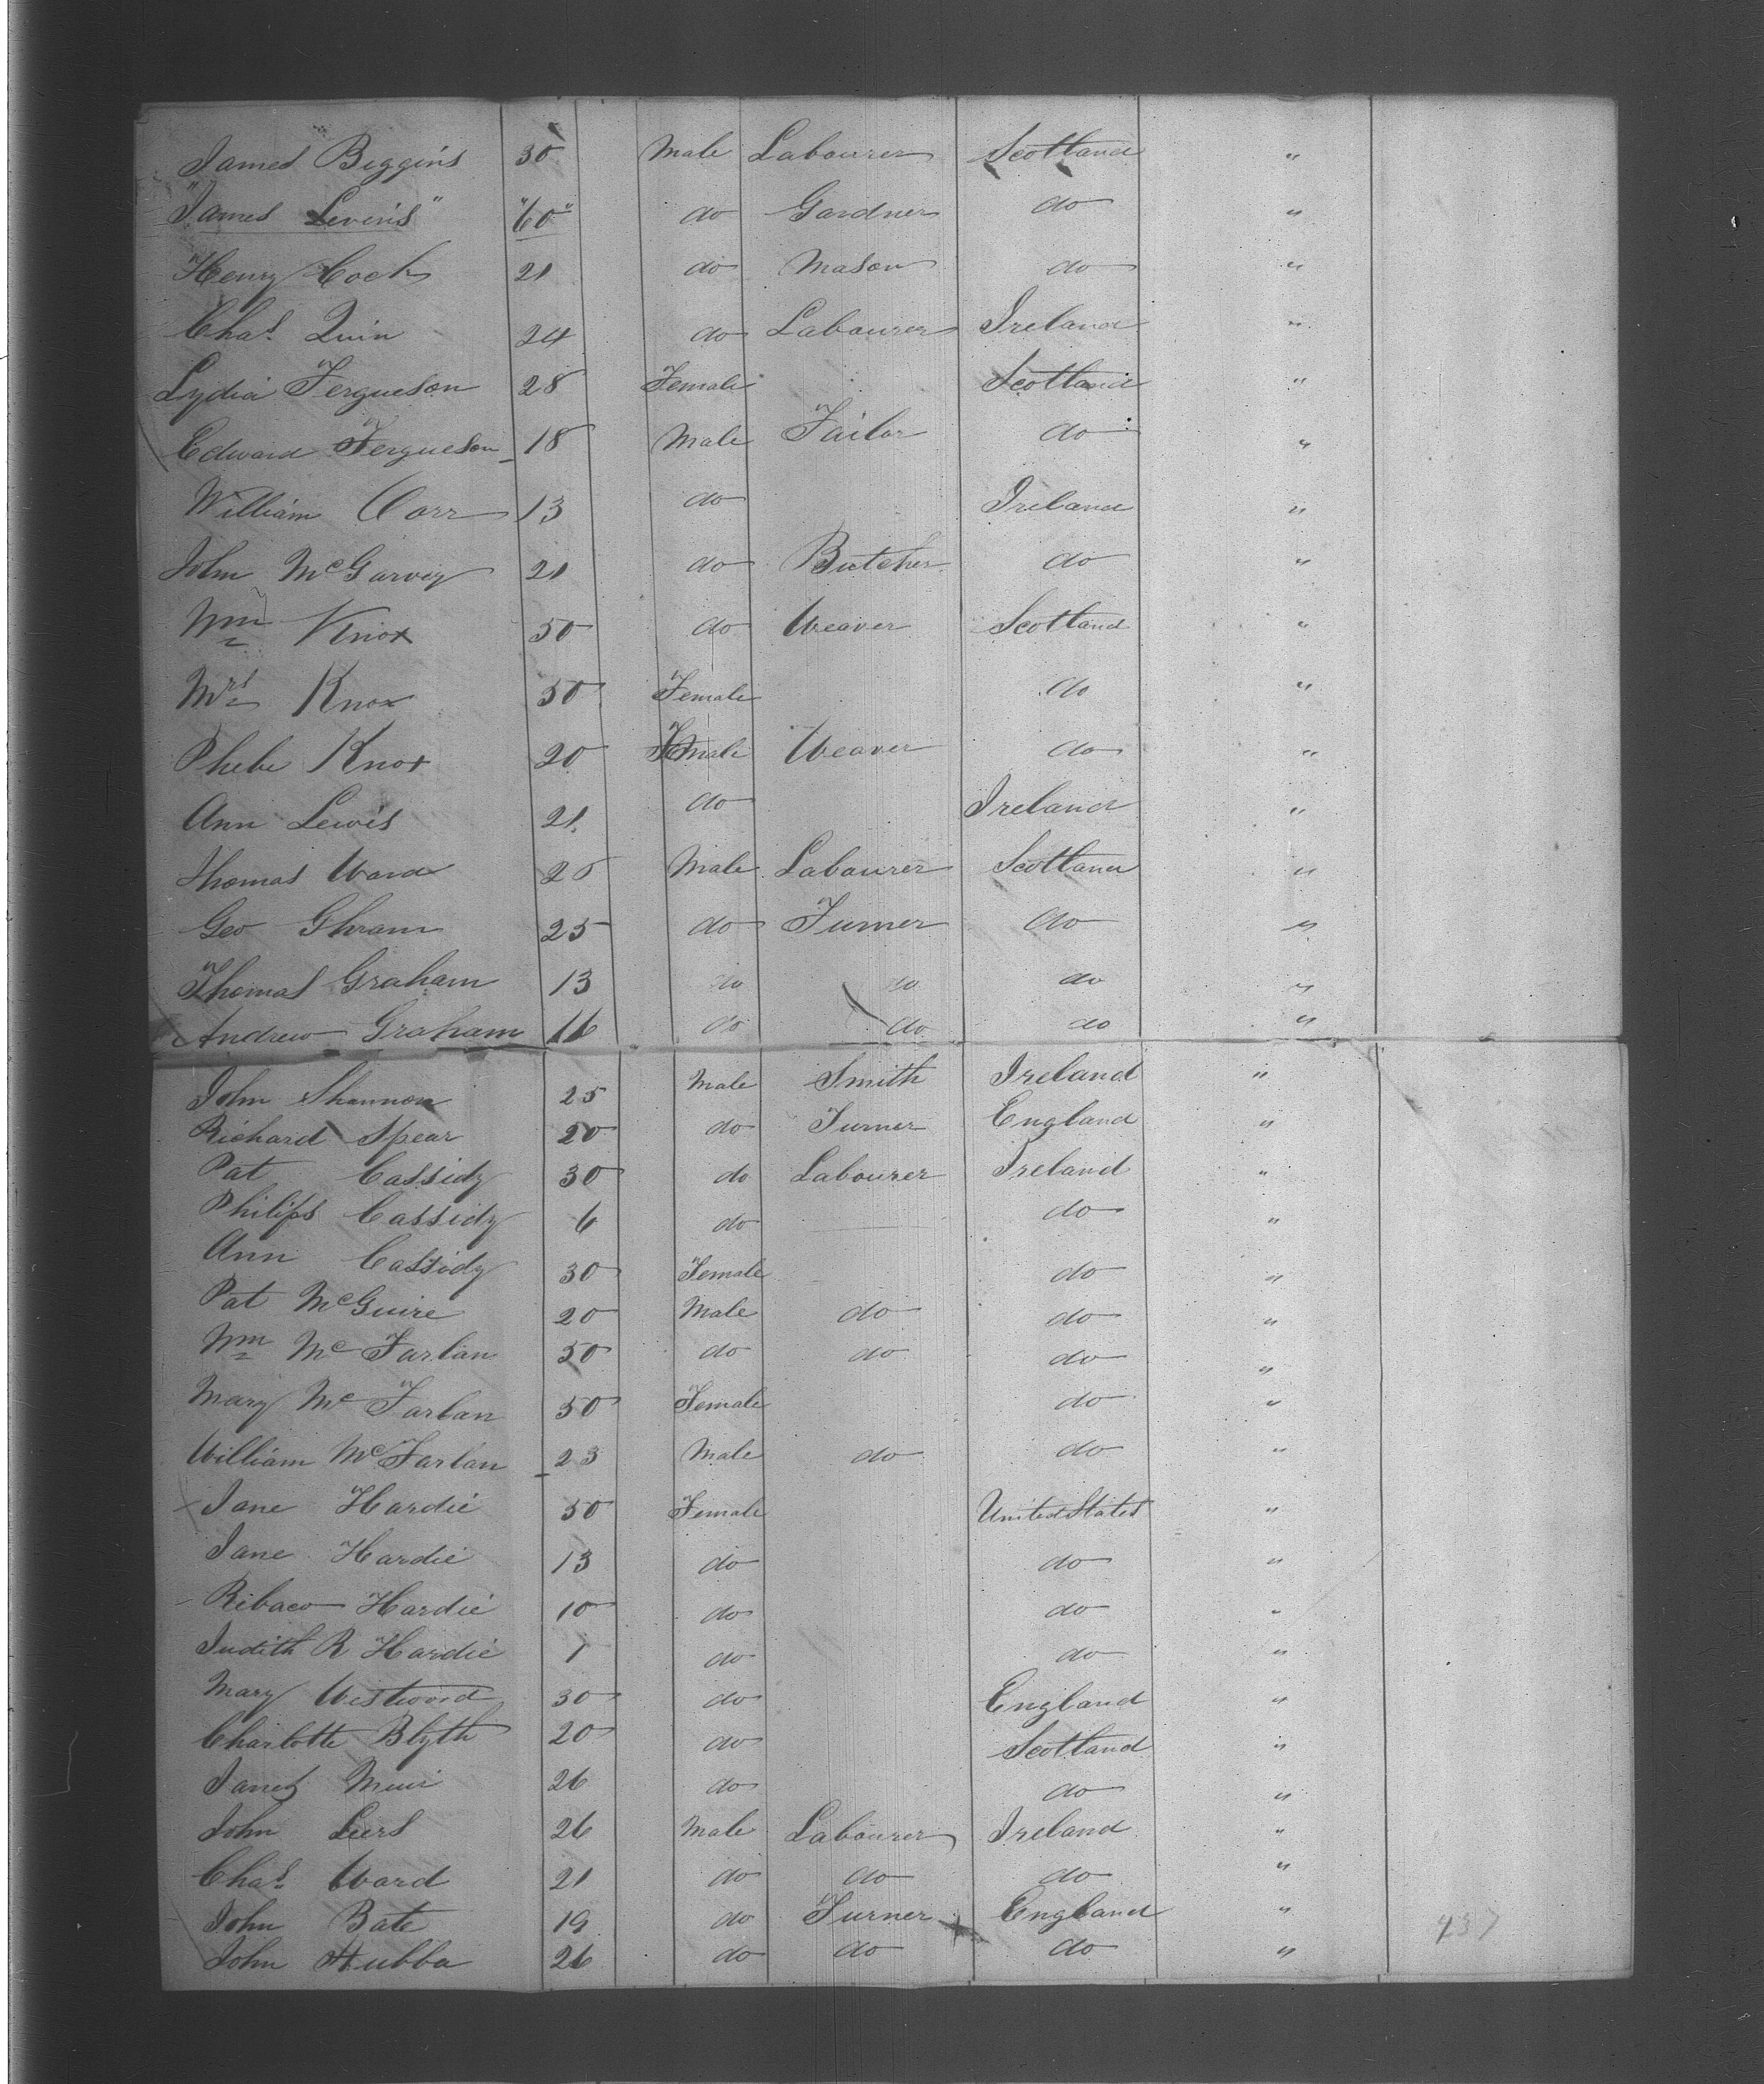 James Biggins 30 Male Labourer Scotland "
"James Levins" "60" do Gardner do "
Henry Cock 21 do Mason do "
Chas. Quin 24 do Labourer Ireland "
Lydia Fergueson 28 Female Scotland "
Edward Fergueson 18 Male Tailor do "
William Corr 13 do Ireland "
John McGarvey 21 do Butcher do "
Wm Knox 50 do Weaver Scotland "
Mrs Knox 50 Female do "
Phebe Knox 20 Female Weaver do "
Ann Lewis 21 do Ireland "
Thomas Ward 25 Male Labourer Scotland "
Geo Ghram 25 do Turner do "
Thomas Graham 13 do do do "
Andrew Graham 16 do do do "
John Shannon 25 Male Smith Ireland "
Richard Spear 20 do Turner England "
Pat Cassidy 30 do Labourer Ireland "
Philips Cassidy 6 do do "
Ann Cassidy 30 Female do "
Pat McGuire 20 Male do do "
Wm McFarlan 50 do do do "
Mary McFarlan 50 Female do "
William McFarlan 23 Male do do "
Jane Hardie 50 Female United States "
Jane Hardie 13 do do "
Ribaco Hardie 10 do do "
Judith R Hardie 1 do do "
Mary Westwood 30 do England "
Charlotte Blyth 20 do Scotland "
Janet Muir 26 do do "
John Leers 26 Male Labourer Ireland "
Chas. Ward 21 do do do "
John Bate 19 do Turner England "
John Hubba 26 do do do "
937